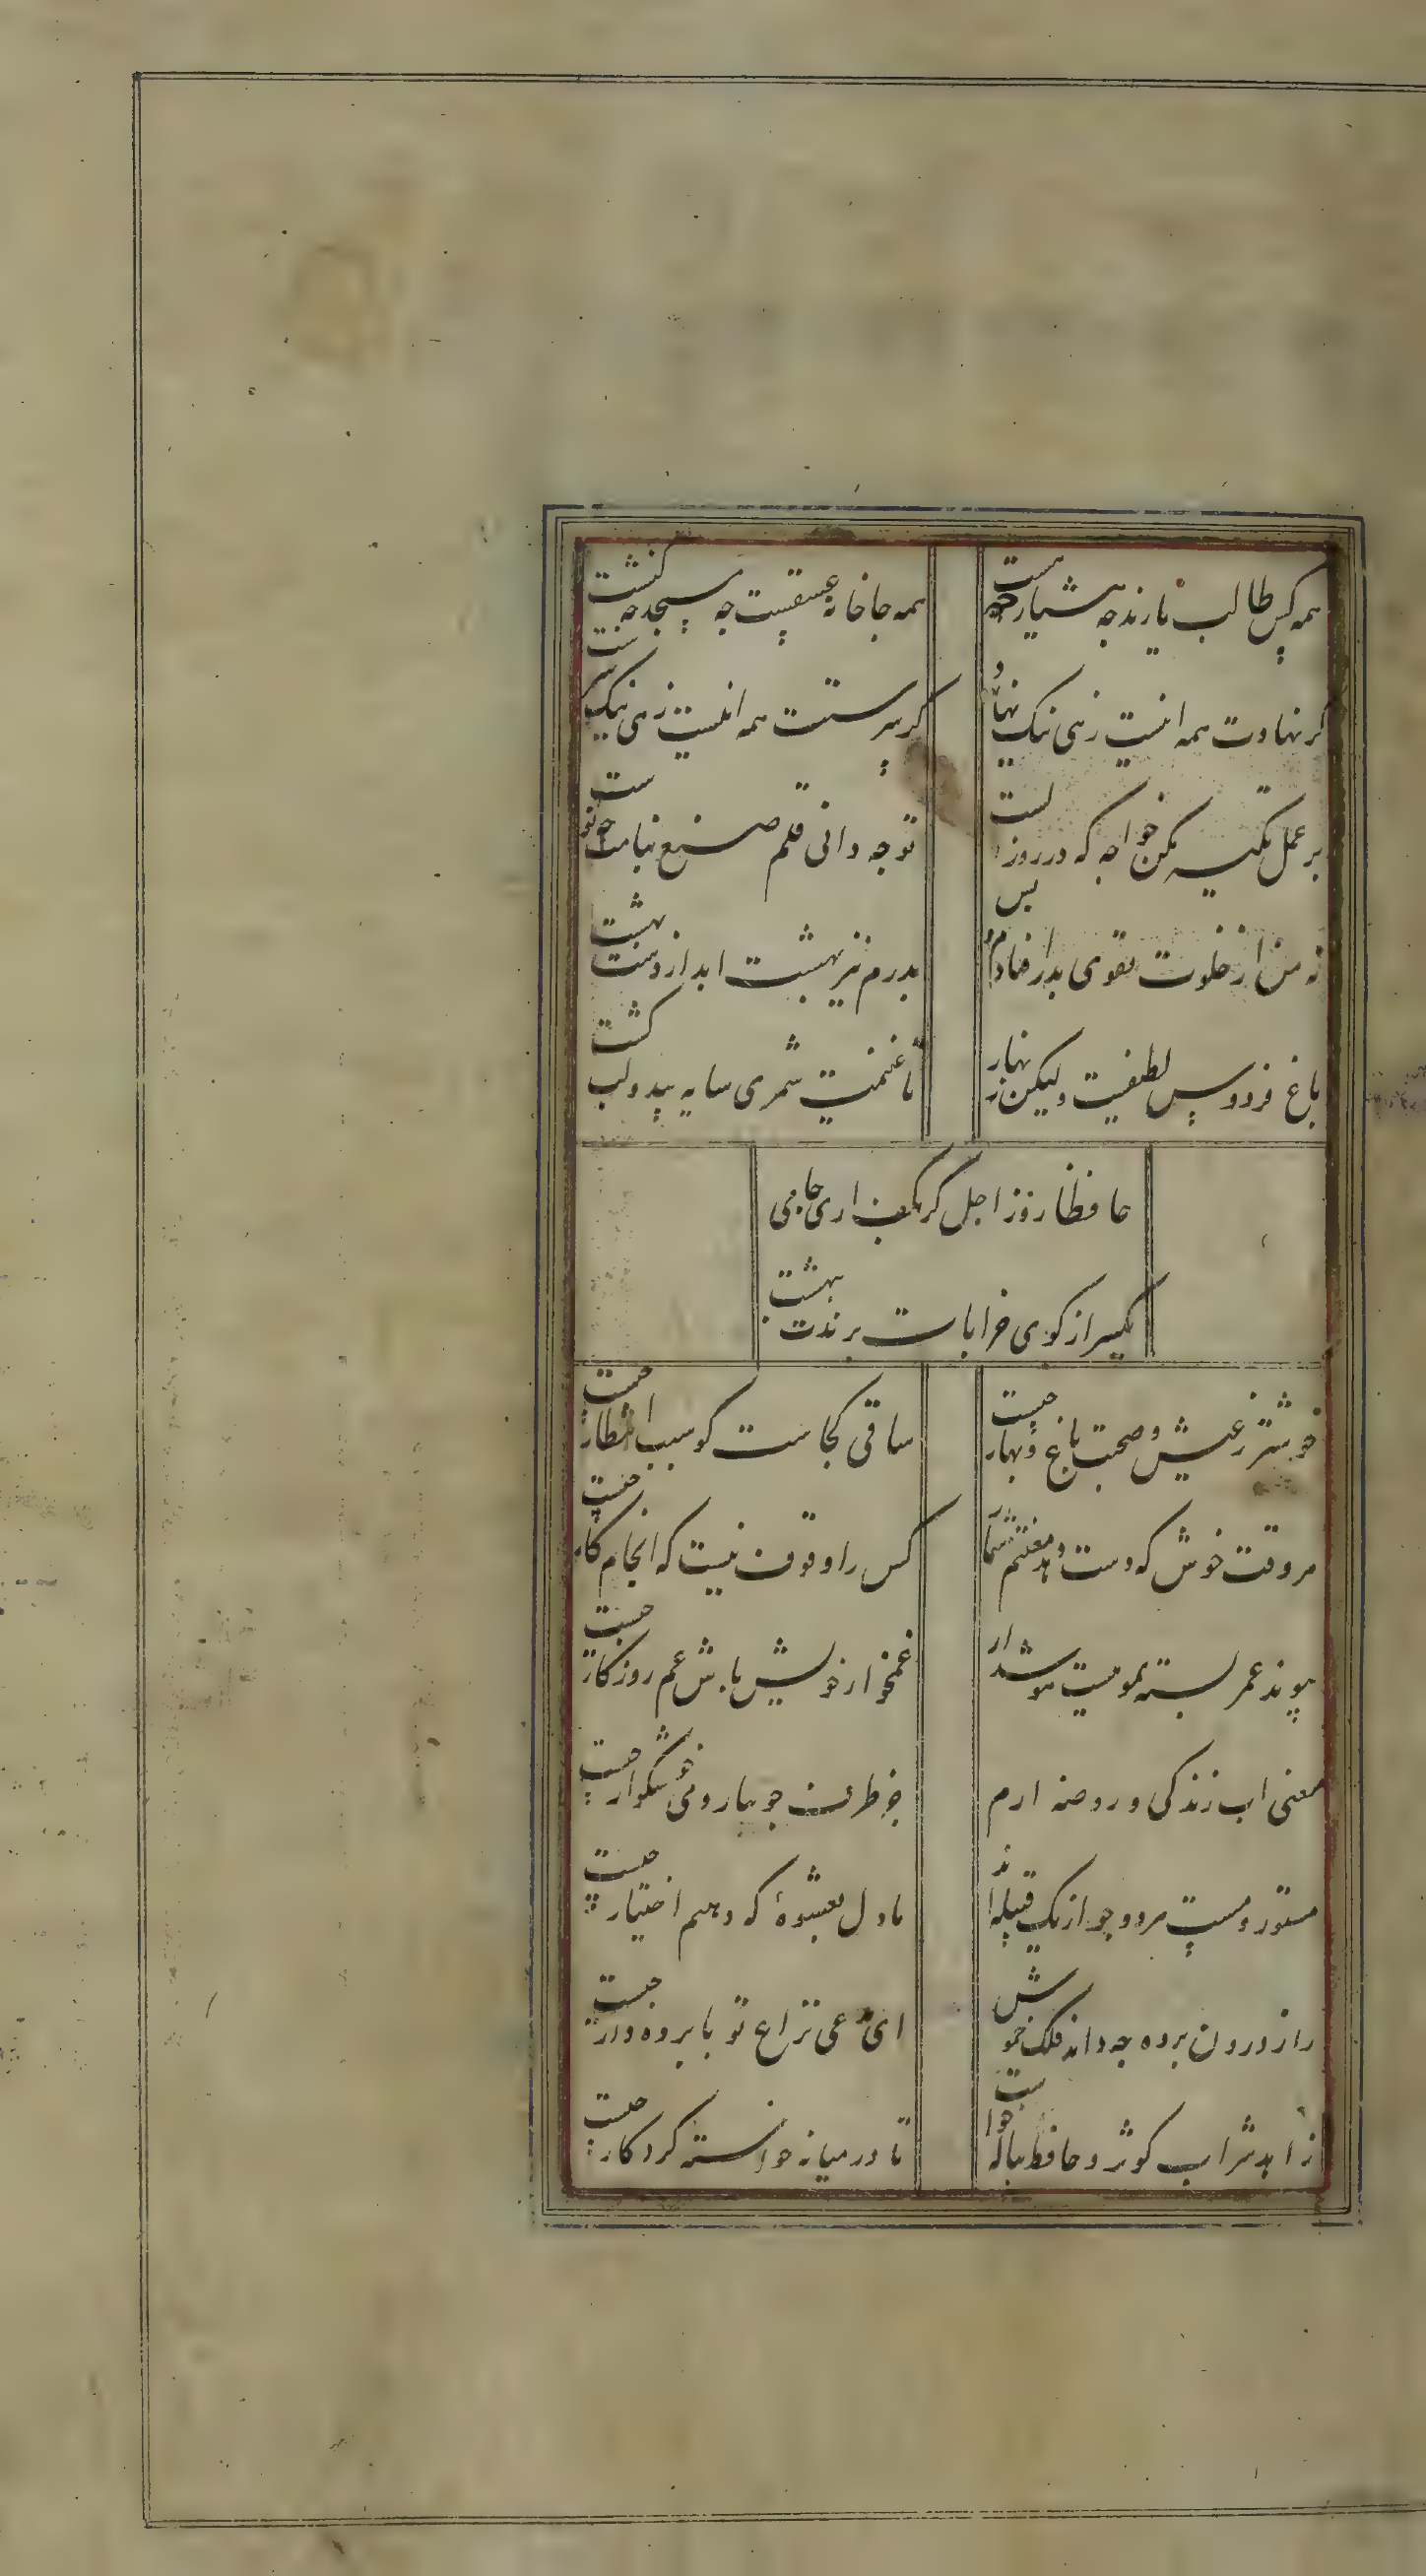 همه کس طالب یارند چه هشیار چه مست
همه جا خانه عشقست چه مسجد چه کنشت
کر نهادت همه اینست زهی نیک نهاد
کر سرشتت همه اینست زهی نیک سرشت
بر عمل تکیه مکن خواجه که در روز الست
تو چه دانی قلم صنع بنامت چه نوشت
نه من از خلوت تقوی بدر افتادم و بس
پدرم نیز بهشت ابد از دست بهشت
باغ فردوس لطیفست ولیکن زنهار
تا غنیمت شمری سایه بید و لب کشت
حافظا روز اجل کر بکف اری جامی
یکسر از کوی خرابات برندت بهشت
خوشتر ز عیش و صحبت باغ و بهار چیست
ساقی کجاست کو سبب انتظار چیست
هر وقت خوش که دست دهد مغتنم شمار
کس را وقوف نیست که انجام کار چیست
پیوند عمر بسته بموییست هوشدار
غمخوار خویش باش غم روزکار چیست
معنی اب زندکی و روضه ارم
جز طرف جویبار و می خوشکوار چیست
مستور و مست هر دو چو از یک قبیله اند
ما دل بعشوهٔ که دهیم اختیار چیست
راز درون پرده چه داند فلک خموش
ای مدعی نزاع تو با پرده دار چیست
زاهد شراب کوثر و حافظ پیاله خواست
تا در میانه خواسته کردکار چیست